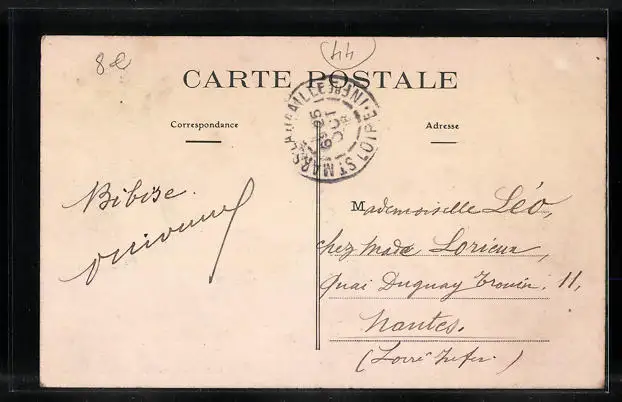 8e
44
CARTE POSTALE
Correspondance
Adresse
ST MARS LA JAILLE
LOIRE INFRE
25
OCT
Mademoiselle Léo,
chez Made Lorieux,
Quai Duguay Trouin, 11,
Nantes.
(Loire Infer.)
Bibise